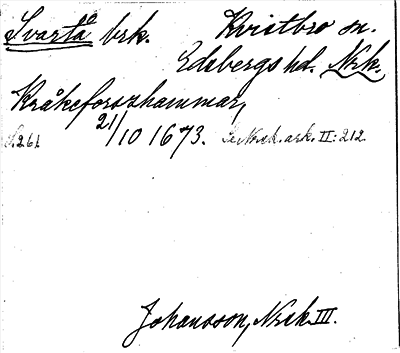 Svartå brk. Kvistbro sn.
Edsbergs hd. Nrk.
Kråkeforszhammar,
S. 261 21/10 1673. Se Nrk. ark. II: 212
Johansson, Nrk III.